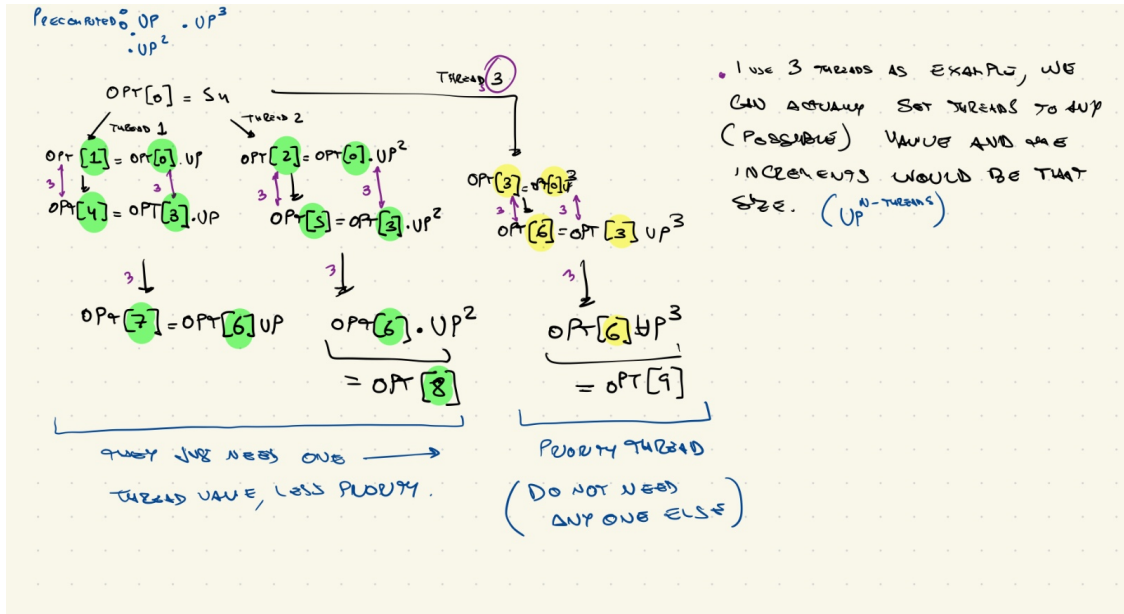 PRECOMPUTED: . UP . UP³
. UP²
OPT[0] = Su
THREAD 3
3
THREAD 1
THREAD 2
OPT [1] = OPT[0].UP
OPT[2] = OPT[0].UP²
OPT[3]=OPT[0]UP³
3 3
3 3
3 3
OPT[4] = OPT[3].UP
OPT[5] = OPT[3].UP²
OPT[6] = OPT[3] UP³
3
3
3
OPT[7] = OPT[6]UP
OPT[6]. UP²
= OPT[8]
OPT[6]UP³
= OPT[9]
THEY JUS NEED ONE
THREAD VALUE, LESS PRIORITY.
PRIORITY THREAD
(DO NOT NEED
ANY ONE ELSE)
. I USE 3 THREADS AS EXAMPLE, WE
CAN ACTUALLY SET THREADS TO ANY
(POSSIBLE) VALUE AND THE
INCREMENTS WOULD BE THAT
SIZE. (UP^N-THREADS)